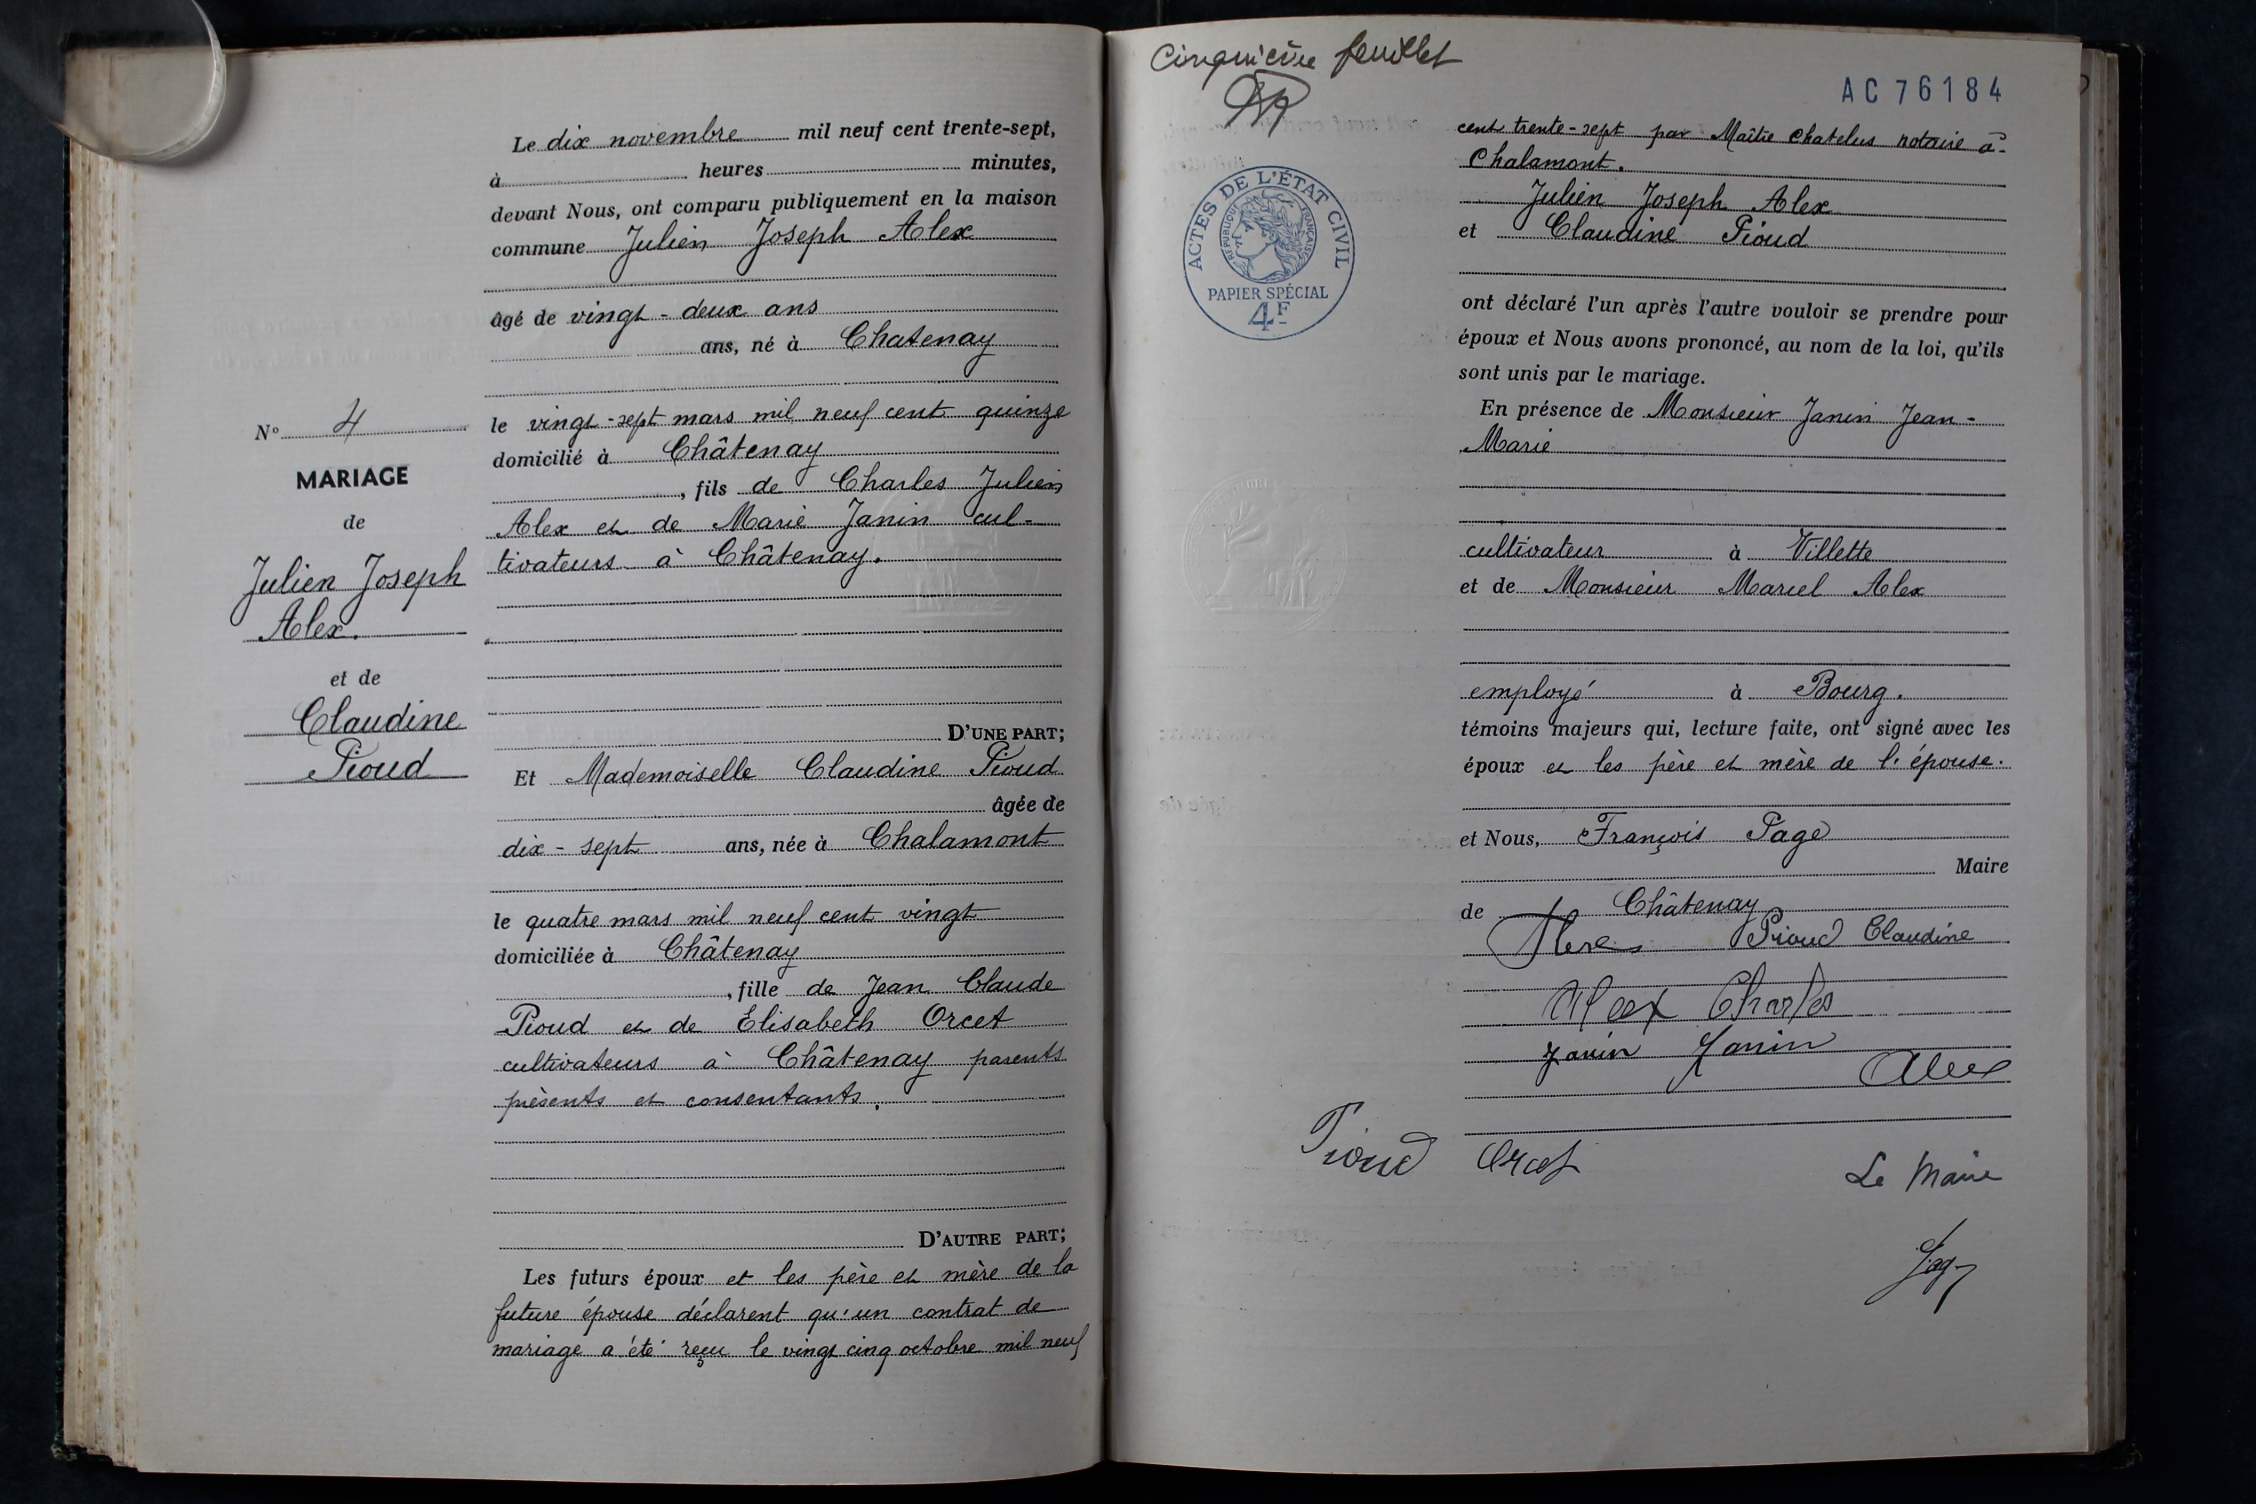 Le dix novembre mil neuf cent trente-sept,
à heures minutes,
devant Nous, ont comparu publiquement en la maison
commune Julien Joseph Alex
âgé de vingt-deux ans
ans, né à Chatenay
le vingt-sept mars mil neuf cent quinze
domicilié à Châtenay
, fils de Charles Julien
Alex et de Marie Janin cul-
tivateurs à Châtenay.
D'UNE PART;
Et Mademoiselle Claudine Pioud
âgée de
dix-sept ans, née à Chalamont
le quatre mars mil neuf cent vingt
domiciliée à Châtenay
, fille de Jean Claude
Pioud et de Élisabeth Orcet
cultivateurs à Châtenay parents
présents et consentants.
D'AUTRE PART;
Les futurs époux et les père et mère de la
future épouse déclarent qu'un contrat de
mariage a été reçu le vingt cinq octobre mil neuf
N° 4
MARIAGE
de
Julien Joseph
Alex.
et de
Claudine
Pioud
Cinquième feuillet
AC 76184
ACTES DE L'ÉTAT CIVIL
RÉPUBLIQUE FRANÇAISE
PAPIER SPÉCIAL
4F
cent trente-sept par Maître Chatelus notaire à
Chalamont.
Julien Joseph Alex
et Claudine Pioud
ont déclaré l'un après l'autre vouloir se prendre pour
époux et Nous avons prononcé, au nom de la loi, qu'ils
sont unis par le mariage.
En présence de Monsieur Janin Jean-
Marie
cultivateur à Villette
et de Monsieur Marcel Alex
employé à Bourg.
témoins majeurs qui, lecture faite, ont signé avec les
époux et les père et mère de l'épouse.
et Nous, François Page
Maire
de Châtenay
Alex Pioud Claudine
Alex Charles
Janin Janin
Alex
Pioud Orcet
Le Maire
Page